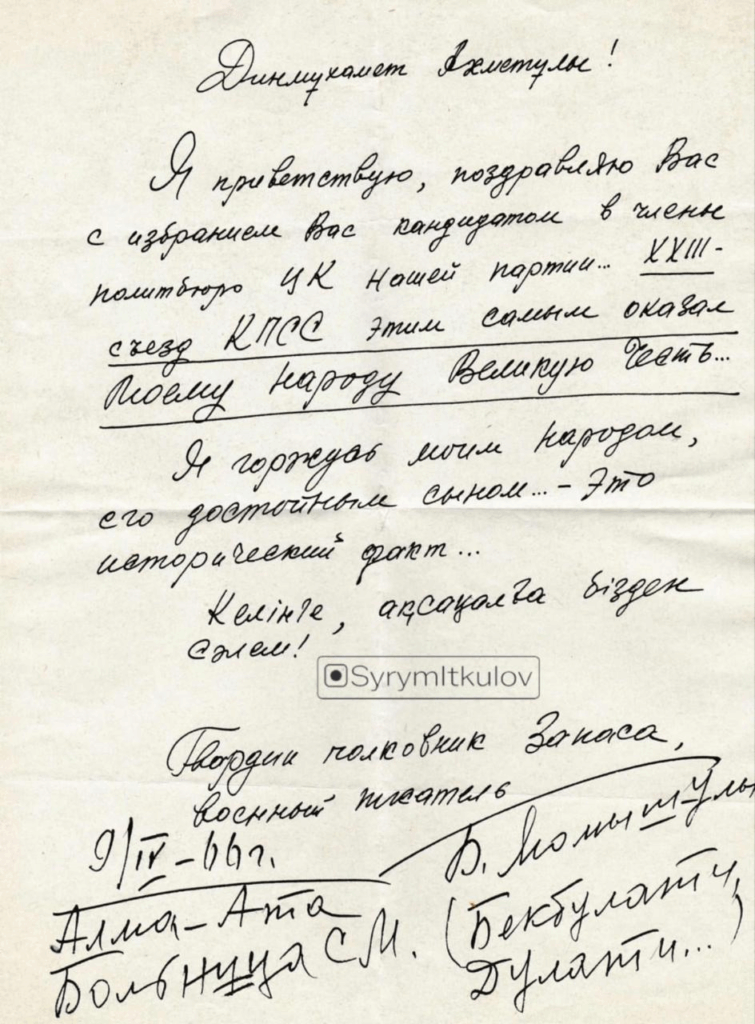 Динмухамет Ахметұлы!
Я приветствую, поздравляю Вас
с избранием Вас кандидатом в члены
политбюро ЦК Нашей партии... XXIII-
съезд КПСС этим самым оказал
Моему Народу Великую Честь...
Я горжусь моим Народом,
его достойным сыном... - Это
исторический факт...
Келінге, ақсақалға бізден
сәлем!
SyrymItkulov
Гвардии полковник Запаса,
военный писатель
9/IV-66 г.
Б. Момышұлы
Алма-Ата
(Бекбулати,
Больница СМ.
Дулати...)